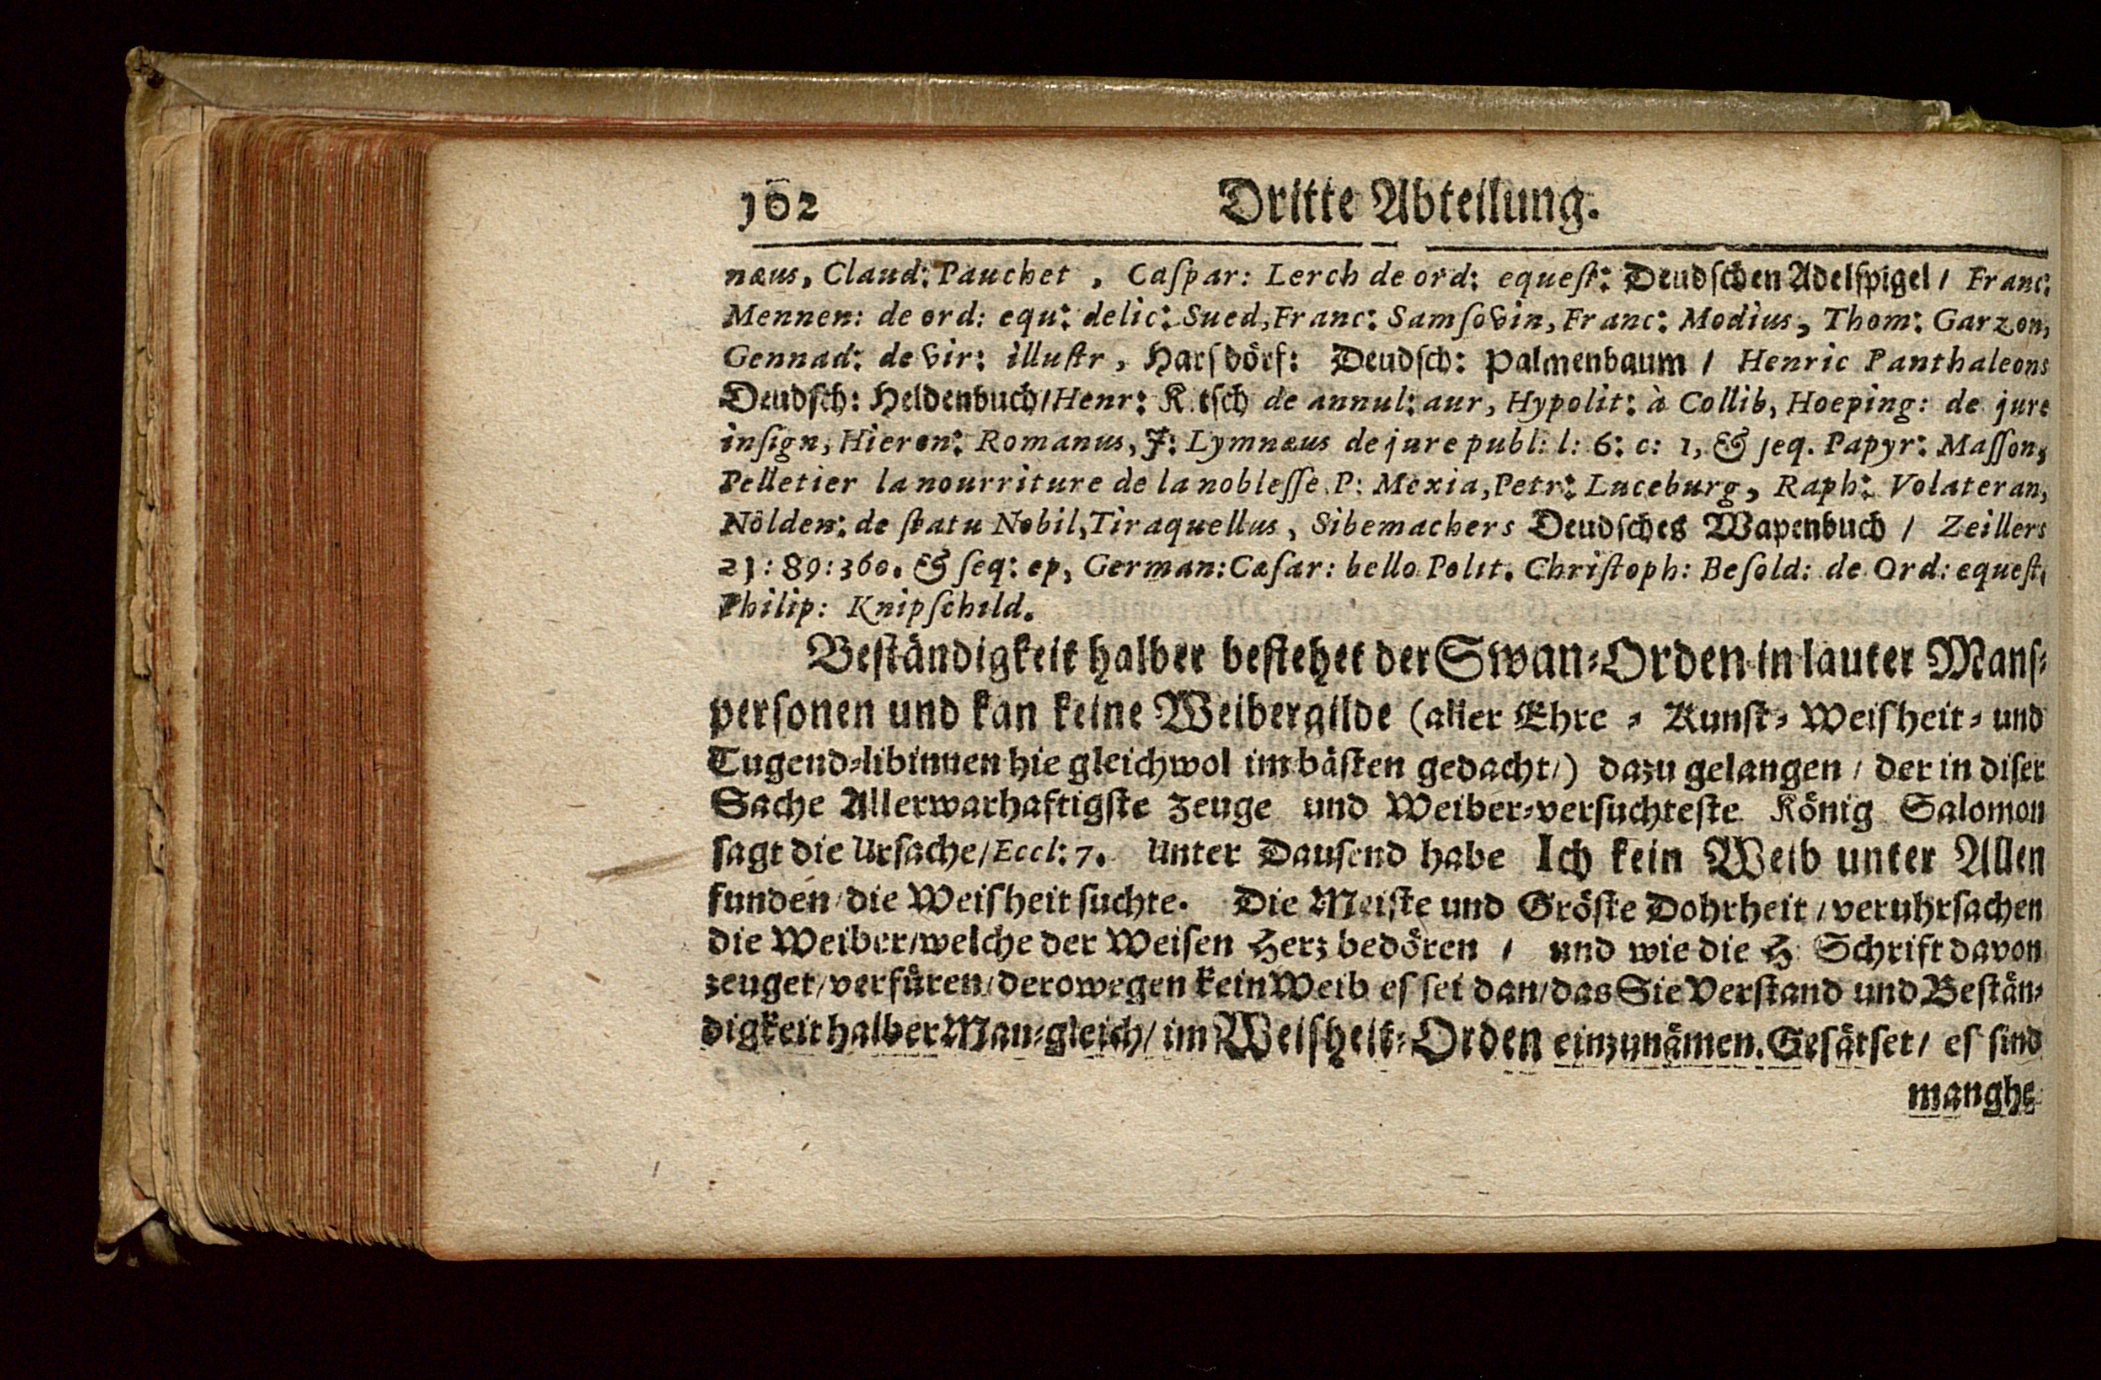 162 Dritte Abteilung.
næus, Claud: Pauchet, Caſpar: Lerch de ord: equeſt: Deudſchen Adelſpigel / Franc:
Mennen: de ord: equ: delic: Sued, Franc: Samſovin, Franc: Modius, Thom: Garzon,
Gennad: de vir: illuſtr, Harſdörf: Deudſch: Palmenbaum / Henric Panthaleons
Deudſch: Heldenbuch / Henr: de annul: aur, Hypolit: à Collib, Hoeping: de jure
inſign, Hieron: Romanus, J: Lymnæus de jure publ: l: 6: c: 1, & ſeq. Papyr: Maſſon,
Pelletier la nourriture de la nobleſſe. P: Mexia, Petr: Luceburg, Raph: Volateran,
Nôlden: de ſtatu Nobil, Tiraquellus, Sibemachers Deudſches Wapenbuch / Zeillers
21: 89: 360. & ſeq: ep, German: Cæſar: bello Polit. Chriſtoph: Beſold: de Ord: equeſt,
Philip: Knipſchild.
Beſtändigkeit halber beſtehet der Swan-Orden in lauter Manſ-
perſonen und kan keine Weibergilde (aller Ehre - Kunſt- Weiſheit- und
Tugend-libinnen hie gleichwol im bäſten gedacht /) dazu gelangen / der in diſer
Sache Allerwarhaftigſte Zeuge und Weiber-verſuchteſte König Salomon
ſagt die Urſache / Eccl: 7. Unter Dauſend habe Ich kein Weib unter Allen
funden / die Weiſheit ſuchte. Die Meiſte und Gröſte Dohrheit / veruhrſachen
die Weiber / welche der Weiſen Herz bedören / und wie die H Schrift davon
zeuget / verfüren / derowegen kein Weib eſ ſei dan / das Sie Verſtand und Beſtän-
digkeit halber Man-gleich / im Weiſheit-Orden einzunämen. Geſätſet / eſ ſind
manghe